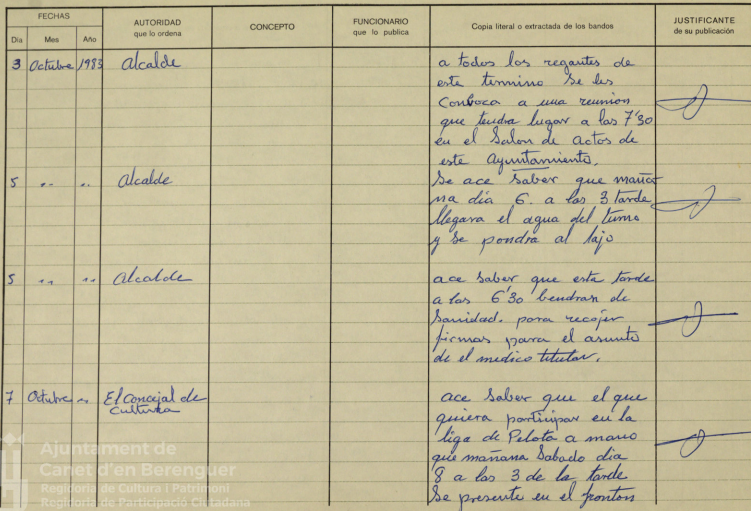 FECHAS
AUTORIDAD
que lo ordena
CONCEPTO
FUNCIONARIO
que lo publica
Copia literal o extractada de los bandos
JUSTIFICANTE
de su publicación
Día Mes Año
3 Octubre 1983 Alcalde a todos los regantes de
este termino se les
Conboca a una reunion
que tendra lugar a las 7'30
en el Salon de actos de
este Ayuntamiento.
5 " " Alcalde Se ace saber que maña
na dia 6. a las 3 tarde
llegara el agua del turno
y se pondra al tajo
5 " " Alcalde ace saber que esta tarde
a las 6'30 bendran de
Sanidad. para recojer
firmas para el asunto
de el medico titular.
7 Octubre " El Concejal de ace saber que el que
Cultura quiera participar en la
liga de Pelota a mano
que mañana Sabado dia
8 a las 3 de la tarde
se presente en el fronton
Ajuntament de
Canet d'en Berenguer
Regidoria de Cultura i Patrimoni
Regidoria de Participació Ciutadana